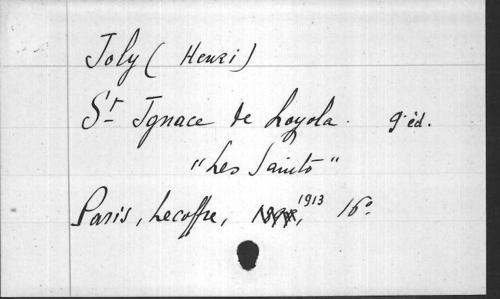 Joly (Henri)
St Ignace de Loyola. 9e éd.
"Les Saints"
Paris, Lecoffre, 1913, 16°